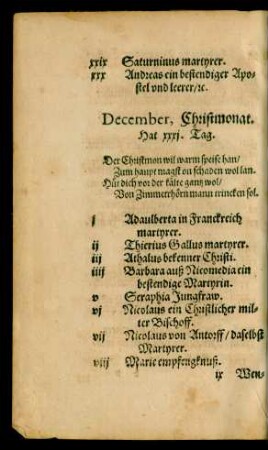 xxix Saturninus martyrer.
xxx Andreas ein bestendiger Apo-
stel vnd leerer/ꝛc.
December, Christmonat.
Hat xxxj. Tag.
Der Christmon wil warm speise han/
Zum haupt magst on schaden wol lan.
Hüt dich vor der kälte gantz wol/
Von Zimmerhörn mann trincken sol.
j Adalberta in Franckreich
martyrer.
ij Thierius Gallus martyrer.
iij Athalus bekenner Christi.
iiij Barbara auß Nicomedia ein
bestendige Martyrin.
v Seraphia Jungfraw.
vj Nicolaus ein Christlicher mil-
ter Bischoff.
vij Nicolaus von Antorff/daselbst
Martyrer.
viij Marie empfengknuß.
ix Wen-